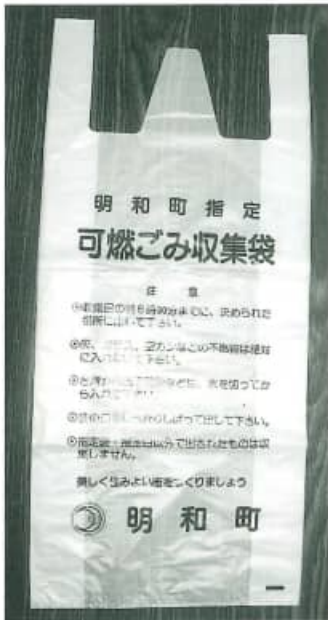 明和町指定
可燃ごみ収集袋
注意
収集日の朝8時30分までに、決められた
場所に出して下さい。
不燃物は絶対
に入れないで下さい。
水を切ってか
ら入れて下さい。
袋の口をしっかりしばって出して下さい。
指定袋・指定日以外で出されたものは収
集しません。
美しく住みよい町をつくりましょう
明和町